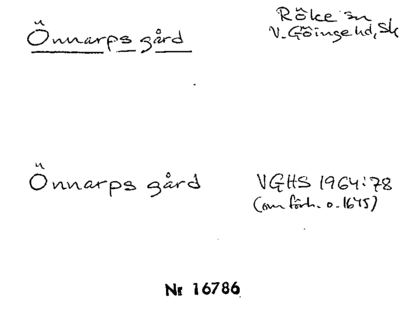 Önnarps gård
Röke sn
V. Göinge hd, Sk
Önnarps gård
VGHS 1964:78
(om förh. o. 1645)
Nr 16786